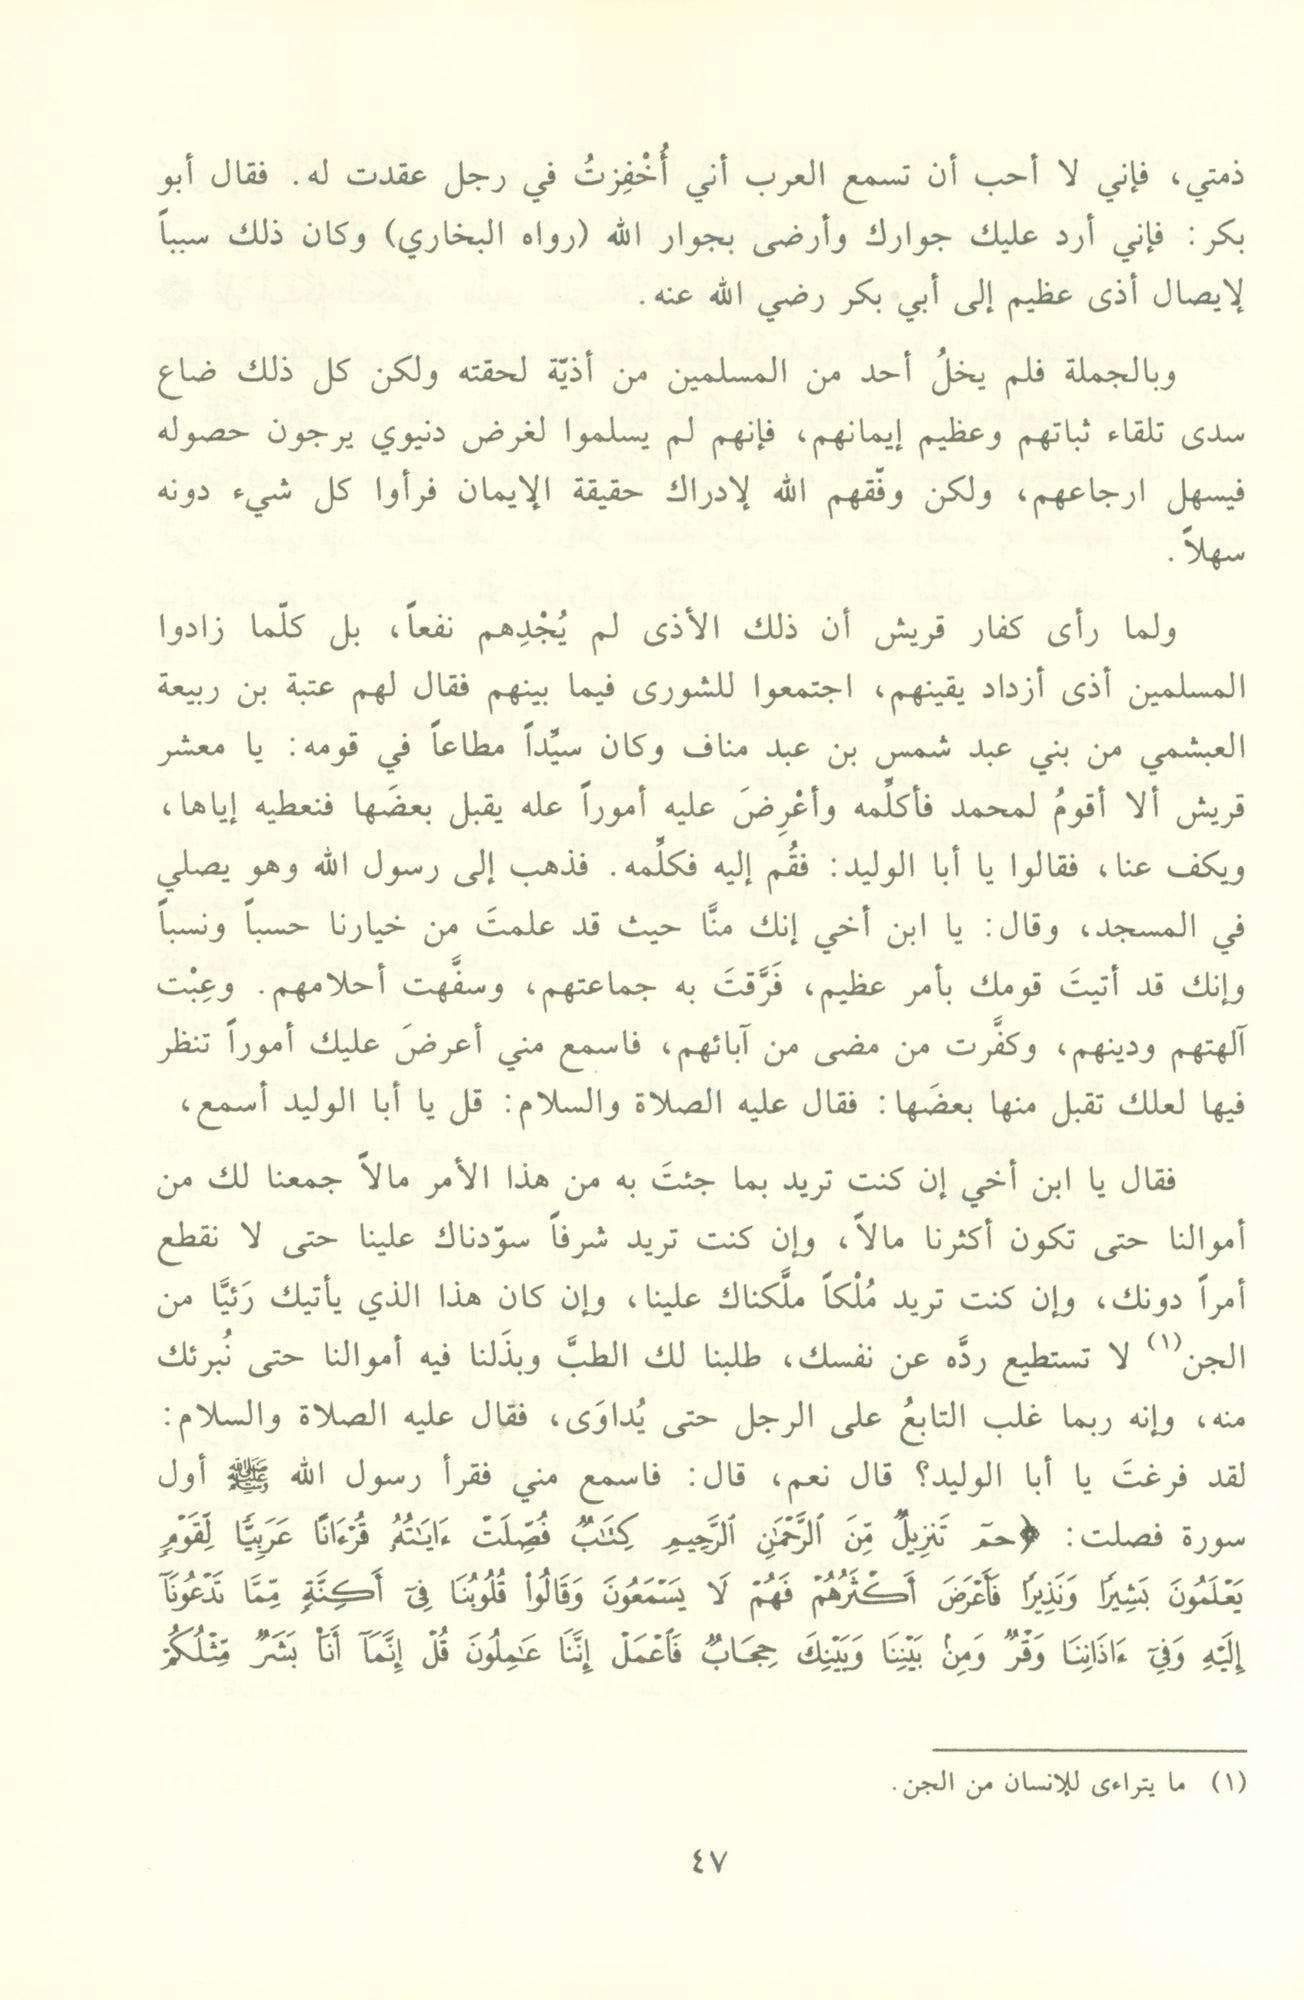 ذمتي، فإني لا أحب أن تسمع العرب أني أُخْفِزتُ في رجل عقدت له. فقال أبو
بكر: فإني أرد عليك جوارك وأرضى بجوار الله (رواه البخاري) وكان ذلك سبباً
لإيصال أذى عظيم إلى أبي بكر رضي الله عنه.
وبالجملة فلم يخلُ أحد من المسلمين من أذيّة لحقته ولكن كل ذلك ضاع
سدى تلقاء ثباتهم وعظيم إيمانهم، فإنهم لم يسلموا لغرض دنيوي يرجون حصوله
فيسهل ارجاعهم، ولكن وفّقهم الله لإدراك حقيقة الإيمان فرأوا كل شيء دونه
سهلاً.
ولما رأى كفار قريش أن ذلك الأذى لم يُجْدِهم نفعاً، بل كلّما زادوا
المسلمين أذى أزداد يقينهم، اجتمعوا للشورى فيما بينهم فقال لهم عتبة بن ربيعة
العبشمي من بني عبد شمس بن عبد مناف وكان سيِّداً مطاعاً في قومه: يا معشر
قريش ألا أقومُ لمحمد فأكلِّمه وأعْرِضَ عليه أموراً عله يقبل بعضَها فنعطيه إياها،
ويكف عنا، فقالوا يا أبا الوليد: فقُم إليه فكلِّمه. فذهب إلى رسول الله وهو يصلي
في المسجد، وقال: يا ابن أخي إنك منَّا حيث قد علمتَ من خيارنا حسباً ونسباً
وإنك قد أتيتَ قومك بأمر عظيم، فَرَّقتَ به جماعتهم، وسفَّهت أحلامهم. وعِبْت
آلهتهم ودينهم، وكفَّرت من مضى من آبائهم، فاسمع مني أعرضَ عليك أموراً تنظر
فيها لعلك تقبل منها بعضَها: فقال عليه الصلاة والسلام: قل يا أبا الوليد أسمع،
فقال يا ابن أخي إن كنت تريد بما جئتَ به من هذا الأمر مالاً جمعنا لك من
أموالنا حتى تكون أكثرنا مالاً، وإن كنت تريد شرفاً سوّدناك علينا حتى لا نقطع
أمراً دونك، وإن كنت تريد مُلْكاً ملَّكناك علينا، وإن كان هذا الذي يأتيك رَئيَّا من
الجن(١) لا تستطيع ردَّه عن نفسك، طلبنا لك الطبَّ وبذَلنا فيه أموالنا حتى نُبرئك
منه، وإنه ربما غلب التابعُ على الرجل حتى يُداوَى، فقال عليه الصلاة والسلام:
لقد فرغتَ يا أبا الوليد؟ قال نعم، قال: فاسمع مني فقرأ رسول الله ﷺ أول
سورة فصلت: ﴿حمٓ تَنزِيلٌ مِّنَ ٱلرَّحْمَٰنِ ٱلرَّحِيمِ كِتَٰبٌ فُصِّلَتْ ءَايَٰتُهُۥ قُرْءَانًا عَرَبِيًّا لِّقَوْمٍ
يَعْلَمُونَ بَشِيرًا وَنَذِيرًا فَأَعْرَضَ أَكْثَرُهُمْ فَهُمْ لَا يَسْمَعُونَ وَقَالُوا۟ قُلُوبُنَا فِىٓ أَكِنَّةٍ مِّمَّا تَدْعُونَآ
إِلَيْهِ وَفِىٓ ءَاذَانِنَا وَقْرٌ وَمِنۢ بَيْنِنَا وَبَيْنِكَ حِجَابٌ فَٱعْمَلْ إِنَّنَا عَٰمِلُونَ قُلْ إِنَّمَآ أَنَا۠ بَشَرٌ مِّثْلُكُمْ
(١) ما يتراءى للإنسان من الجن.
٤٧